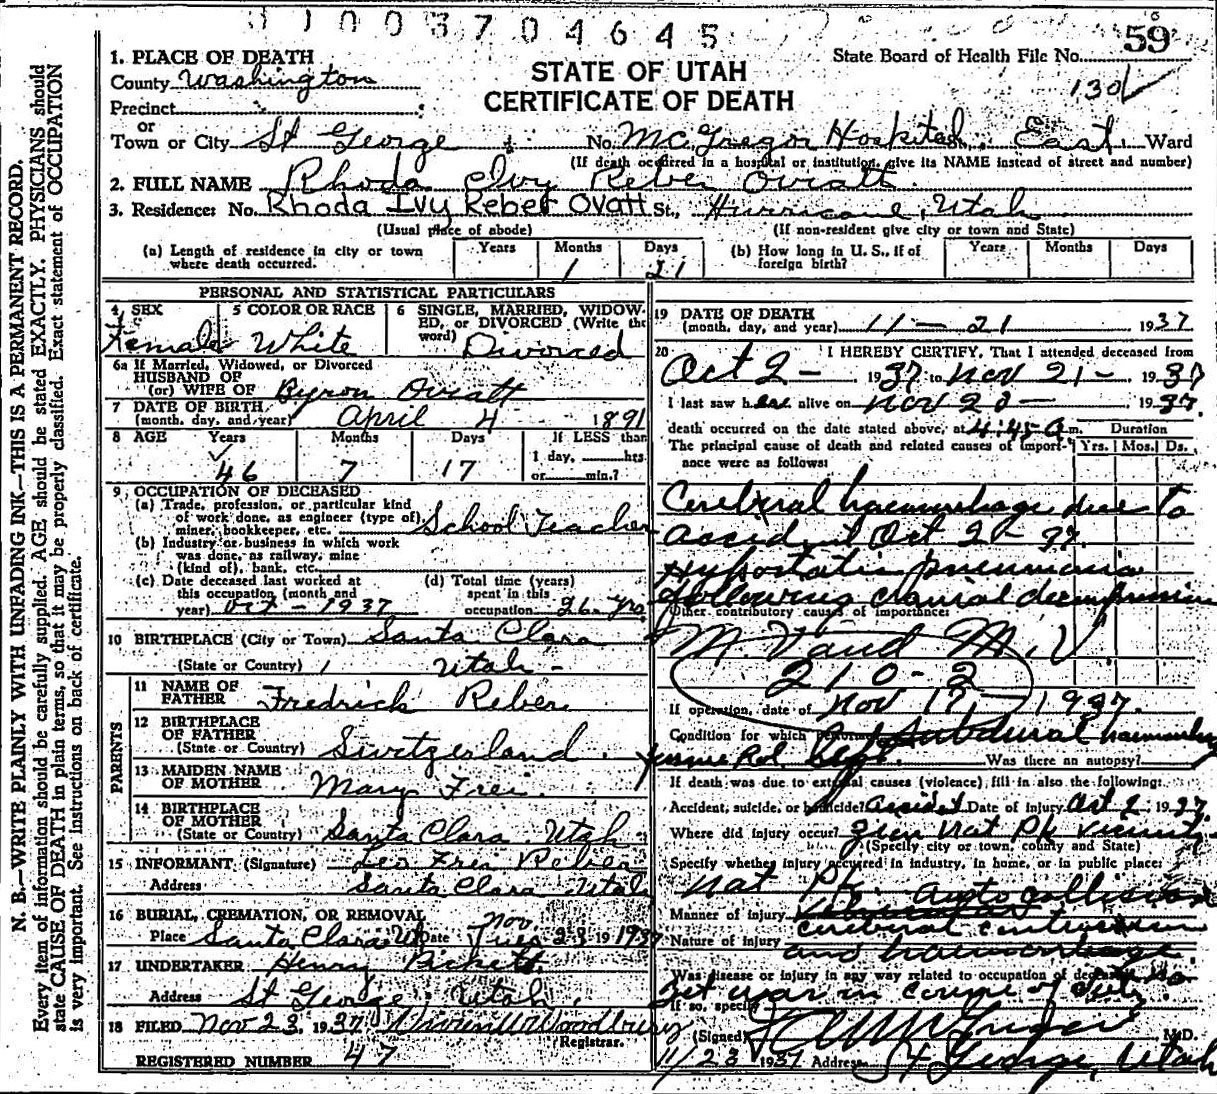 1003704645
State Board of Health File No. 59
130
1. PLACE OF DEATH
County Washington
STATE OF UTAH
CERTIFICATE OF DEATH
Precinct
or
Town or City St George No. McGregor Hospital, East Ward
(If death occurred in a hospital or institution, give its NAME instead of street and number)
2. FULL NAME Rhoda Ivy Reber Oviatt
3. Residence: No. Rhoda Ivy Reber Ovatt St., Hurricane, Utah
(Usual place of abode) (If non-resident give city or town and State)
(a) Length of residence in city or town where death occurred. Years Months 1 Days 21
(b) How long in U. S., if of foreign birth? Years Months Days
PERSONAL AND STATISTICAL PARTICULARS
4 SEX Female
5 COLOR OR RACE White
6 SINGLE, MARRIED, WIDOWED, or DIVORCED (Write the word) Divorced
6a If Married, Widowed, or Divorced
HUSBAND OF
(or) WIFE OF Byron Oviatt
7 DATE OF BIRTH
(month, day, and year) April 4 1891
8 AGE Years 46 Months 7 Days 17 If LESS than
1 day, hrs.
or min.?
9 OCCUPATION OF DECEASED
(a) Trade, profession, or particular kind
of work done, as engineer (type of)
miner, bookkeeper, etc. School Teacher
(b) Industry or business in which work
was done, as railway, mine
(kind of), bank, etc.
(c) Date deceased last worked at
this occupation (month and
year) Oct - 1937
(d) Total time (years)
spent in this
occupation 26 yrs
10 BIRTHPLACE (City or Town) Santa Clara
(State or Country) Utah -
PARENTS
11 NAME OF
FATHER Fredrick Reber
12 BIRTHPLACE
OF FATHER
(State or Country) Switzerland
13 MAIDEN NAME
OF MOTHER Mary Frei
14 BIRTHPLACE
OF MOTHER
(State or Country) Santa Clara Utah
15 INFORMANT (Signature) Leo Frei Reber
Address Santa Clara Utah
16 BURIAL, CREMATION, OR REMOVAL
Place Santa Clara Ut Date Nov Tues 23 19 1937
17 UNDERTAKER Henry Pickett
Address St George Utah
18 FILED Nov 23, 1937 Vivian W Woodbury
Registrar.
REGISTERED NUMBER 47
19 DATE OF DEATH
(month, day, and year) 11 - 21 1937
20 I HEREBY CERTIFY, That I attended deceased from
Oct 2 - 1937 to Nov 21 - 1937
I last saw her alive on Nov 20 - 1937
death occurred on the date stated above, at 4:45 A.m. Duration
The principal cause of death and related causes of importance were as follows: Yrs. Mos. Ds.
Cerebral haemorrhage due to
accident Oct 2 - 37
Hypostatic pneumonia
following cranial decompression
Other contributory causes of importance:
M. V
210-2
If operation, date of Nov 17, 1937.
Condition for which performed Subdural haemorrhage
Was there an autopsy?
If death was due to external causes (violence) fill in also the following:
Accident, suicide, or homicide? Accident Date of injury Oct 2 1937
Where did injury occur? Zion Nat Pk vicinity
(Specify city or town, county and State)
Specify whether injury occurred in industry, in home, or in public place:
Nat Pk
Manner of injury Auto collision
Nature of injury cerebral contusion
and haemorrhage
Was disease or injury in any way related to occupation of deceased? No
If so, specify
(Signed) McGregor M.D.
11/23 1937 Address St George, Utah
N. B.—WRITE PLAINLY WITH UNFADING INK—THIS IS A PERMANENT RECORD.
Every item of information should be carefully supplied. AGE should be stated EXACTLY. PHYSICIANS should
state CAUSE OF DEATH in plain terms, so that it may be properly classified. Exact statement of OCCUPATION
is very important. See instructions on back of certificate.